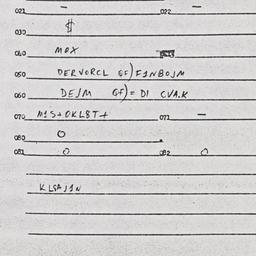 021 — 022 —
030 $
040 MOX
050 DERVORCL GF) F1NBOJM
060 DEJM GF) = DI CVA.K
070 M1S+OKL8T+ 071 —
080 O
081 O 082 O